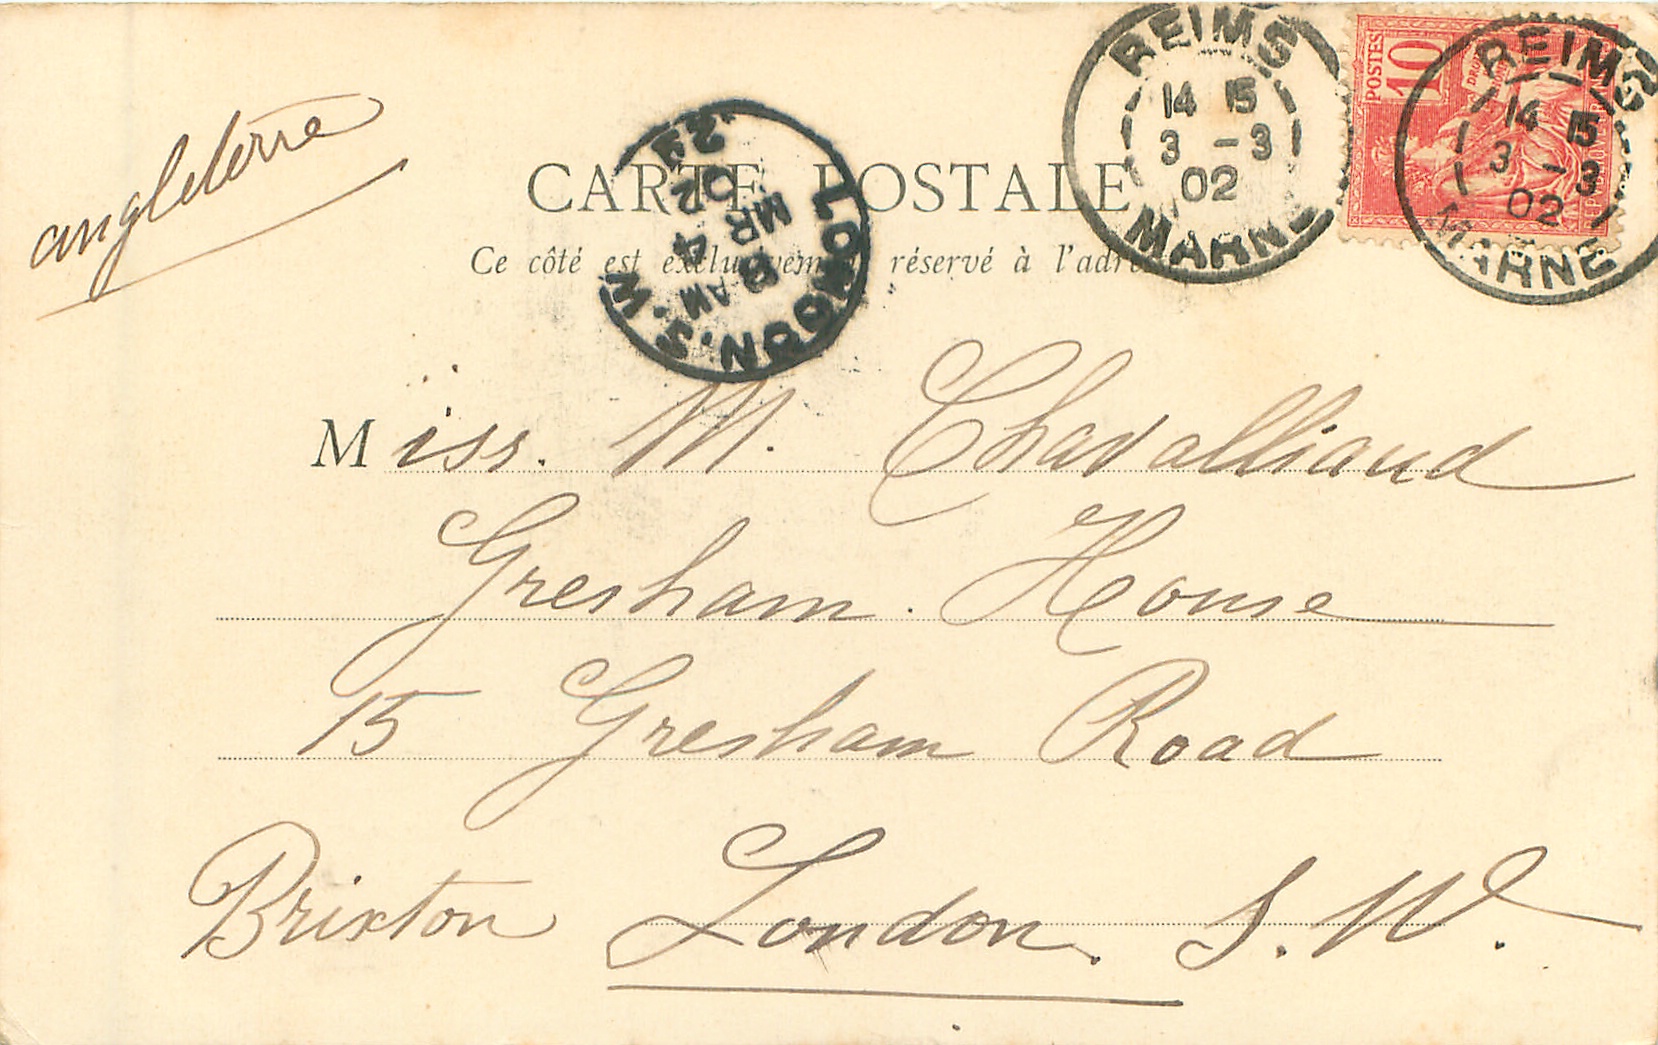 REIMS
14 15
3 - 3
02
MARNE
POSTES
10
REIMS
14 15
3 - 3
02
MARNE
angleterre
CARTE POSTALE
Ce côté est exclusivement réservé à l'adresse
LONDON. S.W.
8 AM
MR 4
02
29
Miss. M. Chavalliaud
Gresham House
15 Gresham Road
Brixton London. S. W.